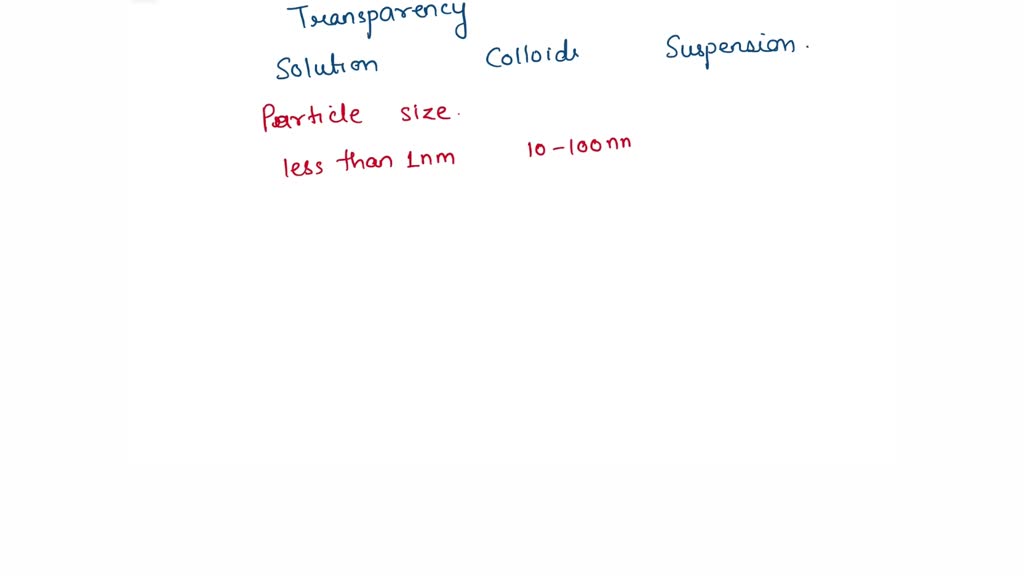 Transparency
Solution Colloids Suspension.
Particle size.
less than 1nm 10-100nn